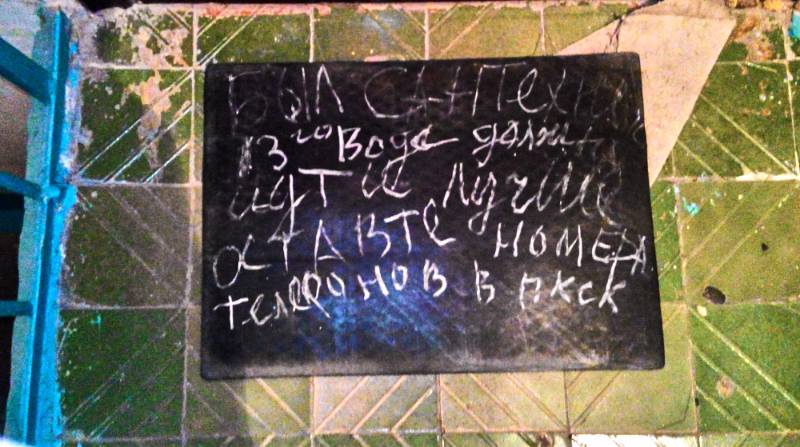 БЫЛ САНТЕХНИК
13го Вода должна
идти лучше
ОСТАВТЕ НОМЕРА
телефонов в пкск